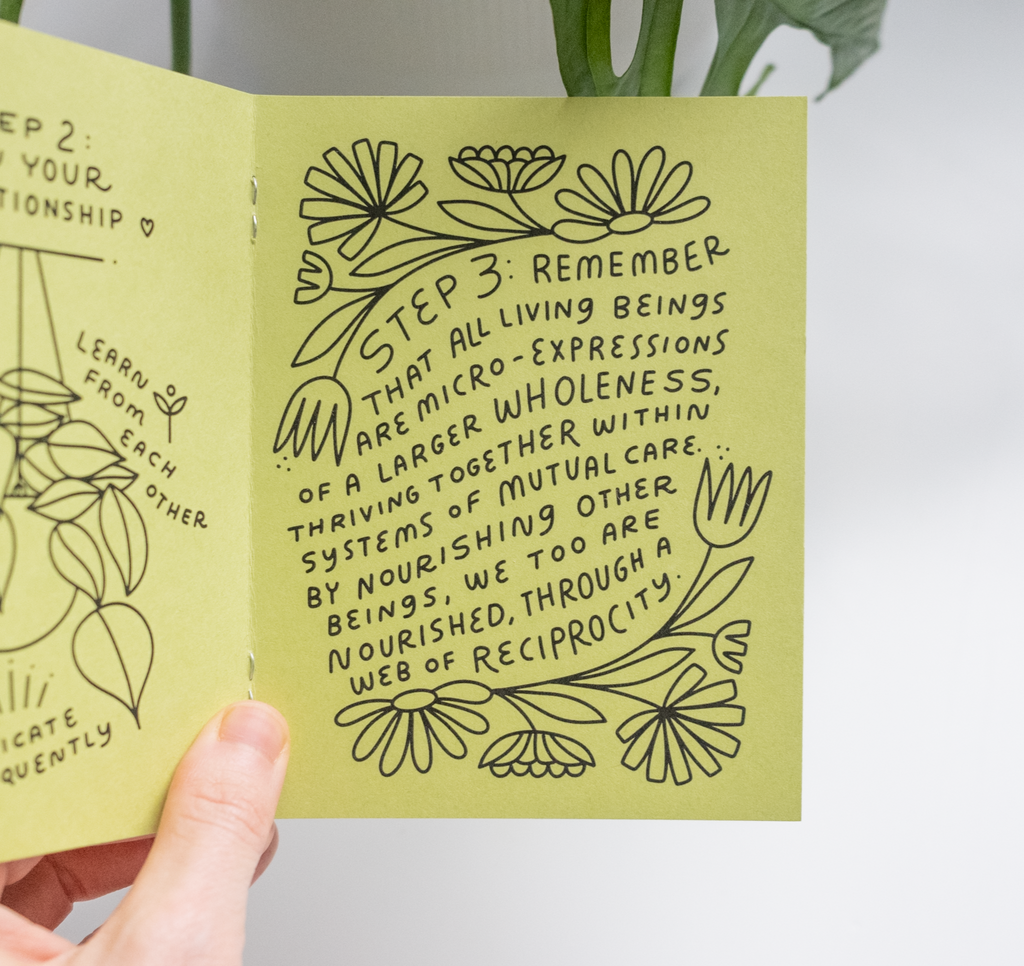 2:
YOUR
♡
LEARN
FROM
EACH
OTHER
STEP 3: REMEMBER
THAT ALL LIVING BEINGS
ARE MICRO-EXPRESSIONS
OF A LARGER WHOLENESS,
THRIVING TOGETHER WITHIN
SYSTEMS OF MUTUAL CARE.
BY NOURISHING OTHER
BEINGS, WE TOO ARE
NOURISHED, THROUGH A
WEB OF RECIPROCITY.